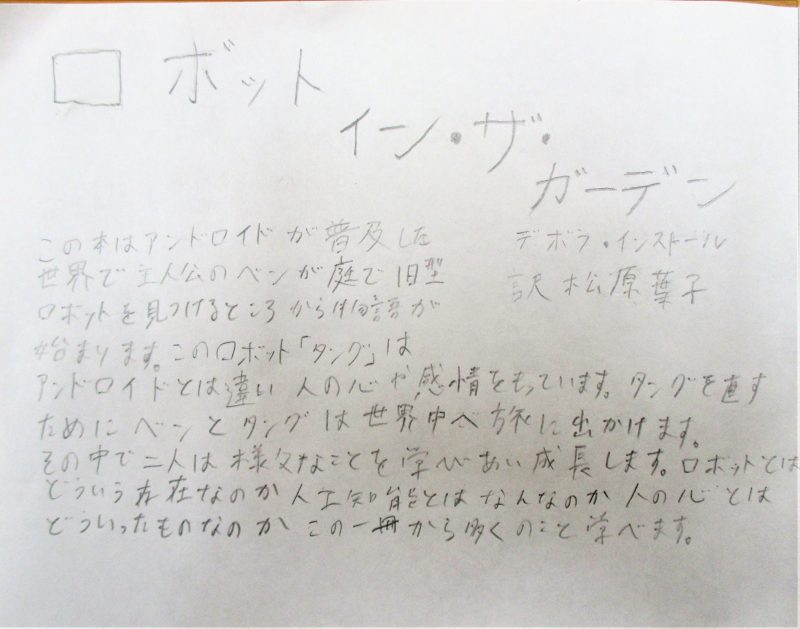 ロボット
イン・ザ・
ガーデン
デボラ・インストール
訳 松原葉子
この本はアンドロイドが普及した
世界で主人公のベンが庭で旧型
ロボットを見つけるところから物語が
始まります。このロボット「タング」は
アンドロイドとは違い人の心や感情をもっています。タングを直す
ためにベンとタングは世界中へ旅に出かけます。
その中で二人は様々なことを学びあい成長します。ロボットとは
どういう存在なのか人工知能とはなんなのか人の心とは
どういったものなのかこの一冊から多くのこと学べます。